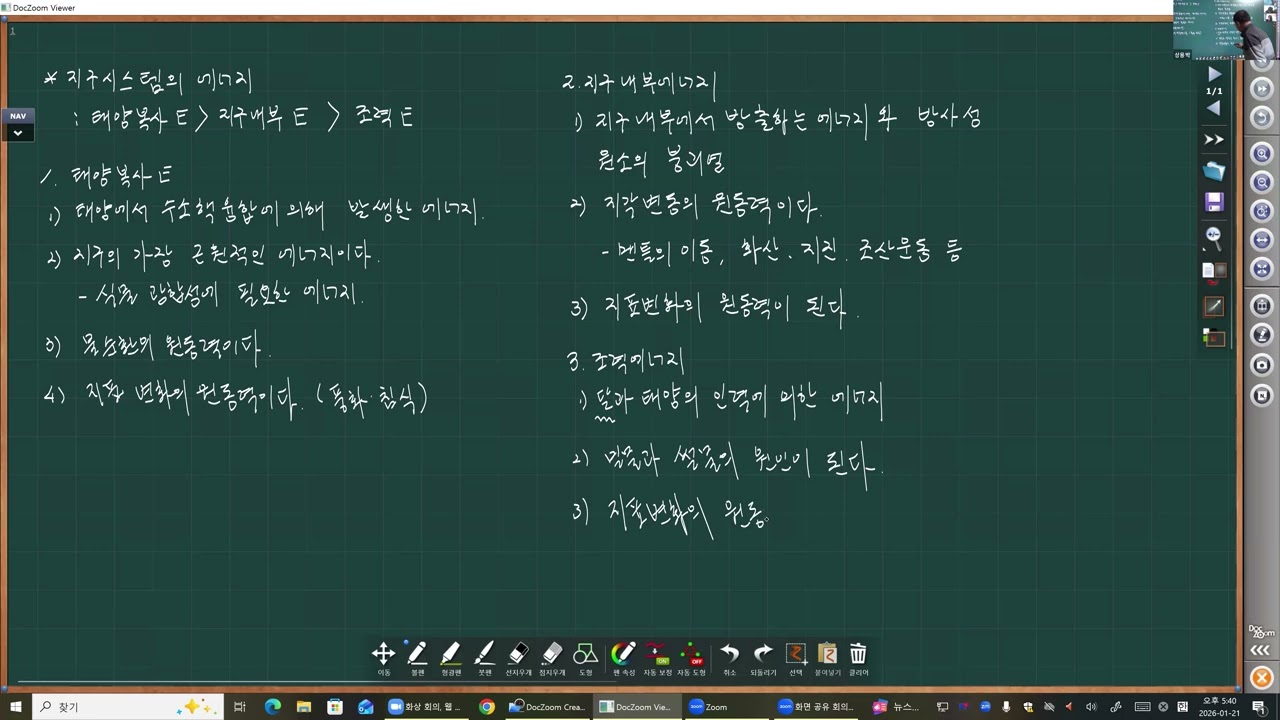 DocZoom Viewer
1
* 지구시스템의 에너지
: 태양복사 E > 지구내부 E > 조력 E
1. 태양복사 E
1) 태양에서 수소핵융합에 의해 발생한 에너지.
2) 지구의 가장 근원적인 에너지이다.
- 식물 광합성에 필요한 에너지.
3) 물순환의 원동력이다.
4) 지표 변화의 원동력이다. (풍화·침식)
2. 지구내부에너지
1) 지구 내부에서 방출하는 에너지와 방사성
원소의 붕괴열
2) 지각변동의 원동력이다.
- 맨틀의 이동, 화산·지진·조산운동 등
3) 지표변화의 원동력이 된다.
3. 조력에너지
1) 달과 태양의 인력에 의한 에너지
2) 밀물과 썰물의 원인이 된다.
3) 지표변화의 원동
NAV
1/1
이동
볼펜
형광펜
붓펜
선지우개
점지우개
도형
펜 속성
자동 보정
자동 도형
취소
되돌리기
선택
붙이넣기
클리어
ON
OFF
Doc
Zoom
찾기
화상 회의, 웹 ...
DocZoom Crea...
DocZoom Vie...
Zoom
화면 공유 회의...
뉴스...
오후 5:40
2026-01-21